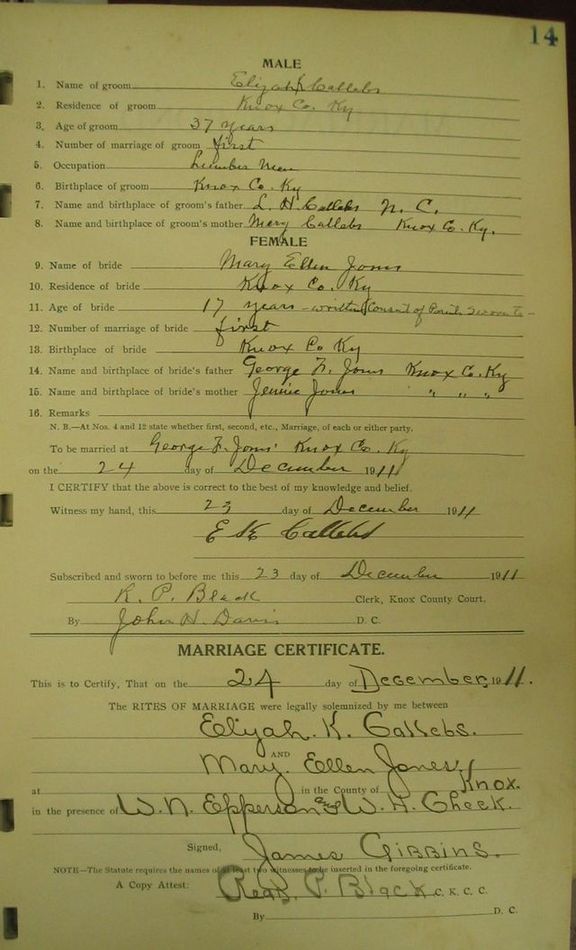 14
MALE
1. Name of groom Elijah K Callebs
2. Residence of groom Knox Co. Ky
3. Age of groom 37 years
4. Number of marriage of groom first
5. Occupation Lumber Man
6. Birthplace of groom Knox Co. Ky
7. Name and birthplace of groom's father L. H. Callebs N. C.
8. Name and birthplace of groom's mother Mary Callebs Knox Co. Ky.
FEMALE
9. Name of bride Mary Ellen Jones
10. Residence of bride Knox Co. Ky
11. Age of bride 17 years - written Consent of Sworn to -
12. Number of marriage of bride first
13. Birthplace of bride Knox Co Ky
14. Name and birthplace of bride's father George F. Jones Knox Co. Ky
15. Name and birthplace of bride's mother Jennie Jones " " "
16. Remarks
N. B.—At Nos. 4 and 12 state whether first, second, etc., Marriage, of each or either party.
To be married at George F. Jones' Knox Co. Ky
on the 24 day of December 1911
I CERTIFY that the above is correct to the best of my knowledge and belief.
Witness my hand, this 23 day of December 1911
E K Callebs
Subscribed and sworn to before me this 23 day of December 1911
R. P. Black Clerk, Knox County Court.
By John H. Davis D. C.
MARRIAGE CERTIFICATE.
This is to Certify, That on the 24 day of December, 1911.
The RITES OF MARRIAGE were legally solemnized by me between
Elijah. K. Callebs.
AND
Mary. Ellen Jones
at in the County of Knox.
in the presence of W. N. Epperson and W. H. Cheek.
Signed, James Gibbins.
NOTE—The Statute requires the names of at least two witnesses to be inserted in the foregoing certificate.
A Copy Attest: Read P. Black C. K. C. C.
By D. C.